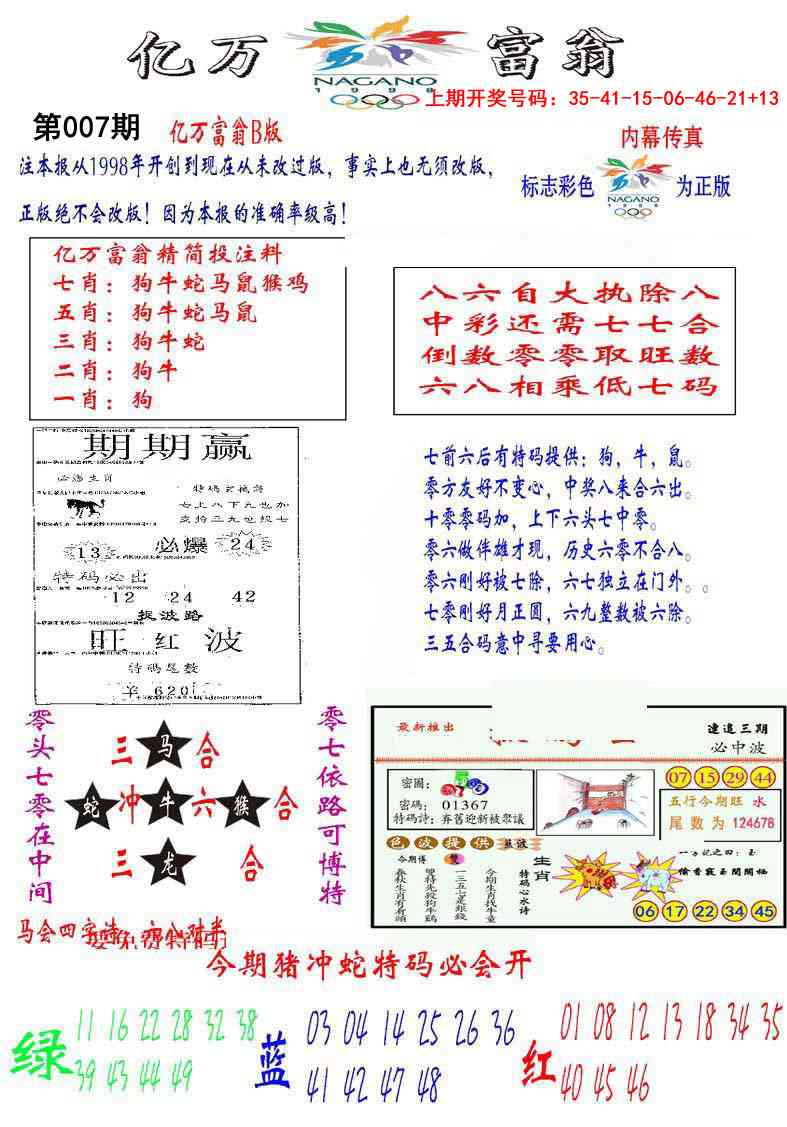 亿万富翁
NAGANO
1998
上期开奖号码：35-41-15-06-46-21+13
第007期
亿万富翁B版
内幕传真
注本报从1998年开创到现在从未改过版，事实上也无须改版，
正版绝不会改版！因为本报的准确率级高！
标志彩色
NAGANO
1998
为正版
亿万富翁精简投注料
七肖：狗牛蛇马鼠猴鸡
五肖：狗牛蛇马鼠
三肖：狗牛蛇
二肖：狗牛
一肖：狗
八六自大执除八
中彩还需七七合
倒数零零取旺数
六八相乘低七码
期期赢
必选生肖
特码玄机诗
七上八下九也加
必爆
13
24
特码必出
12 24 42
捉波路
旺红波
特码尾数
羊 620
七前六后有特码提供：狗，牛，鼠。
零方友好不变心，中奖八来合六出。
十零零码加，上下六头七中零。
零六做伴雄才现，历史六零不合八。
零六刚好被七除，六七独立在门外。。
七零刚好月正圆，六九整数被六除。
三五合码意中寻要用心。
零头七零在中间
三马合
蛇冲牛六猴合
三龙合
零七依路可博特
最新推出
连追三期
必中波
07 15 29 44
密图：
密码：01367
特码詩：弃舊迎新被眾議
五行今期旺 水
尾数为 124678
色波提供
今期博
春秋生肖有有頭
雙特先投狗牛鷄
一三五七是銀錢
今期生肖找牛童
生肖
特码心水诗
06 17 22 34 45
马会四字诗
今期猪冲蛇特码必会开
绿
11 16 22 28 32 38
39 43 44 49
蓝
03 04 14 25 26 36
41 42 47 48
红
01 08 12 13 18 34 35
40 45 46